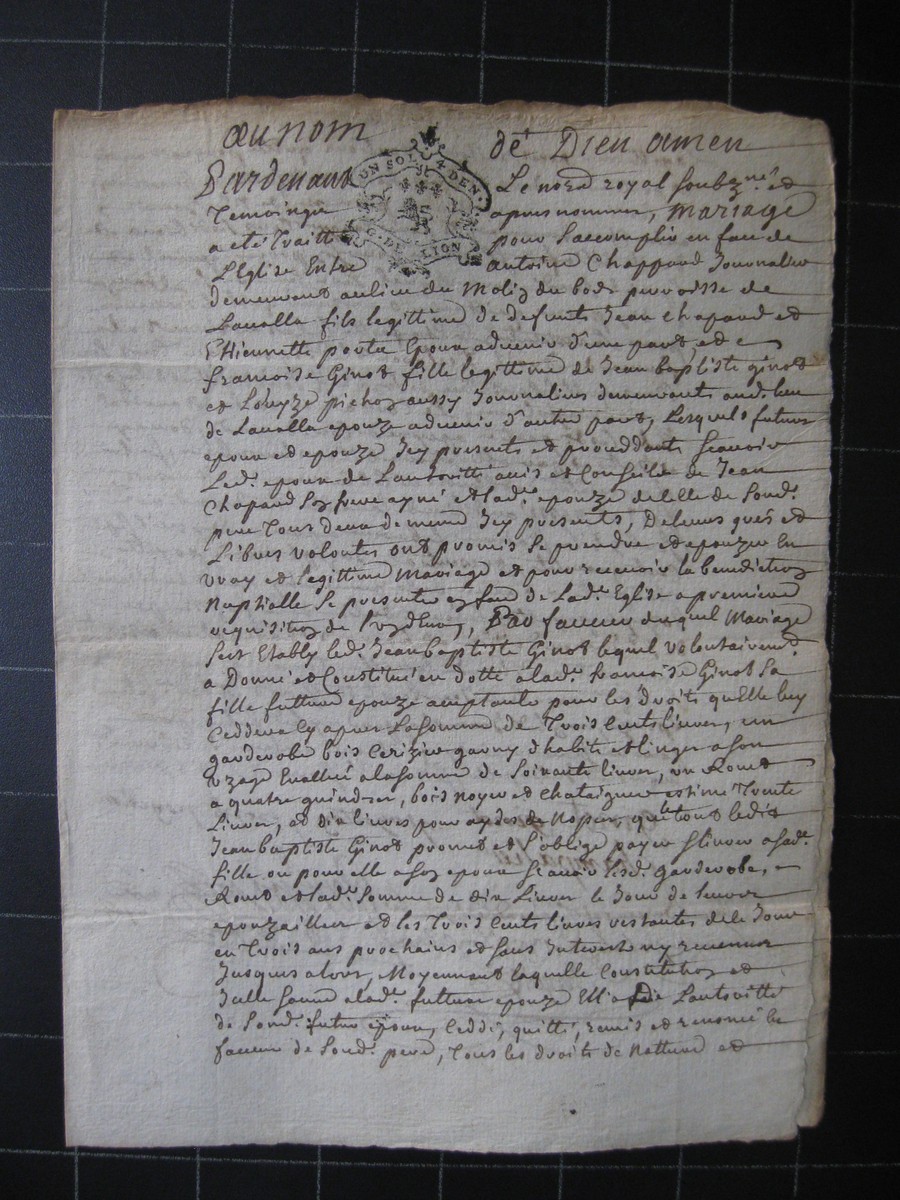 au nom de Dieu amen
UN SOL 4 DEN.
G. DE LION
Pardevant Le no.re royal soubz.né et
Temoings apres nommes, Mariage
a eté Traitté pour Saccomplir en face de
L'Eglise Entre Antoine Chappard Journalier
demeurant au lieu du Moliz du bost parroisse de
Lavalla fils legittime de defunts Jean Chapard et
Ethiennette portu Epoux advenir d'une part et
francoise Ginot fille legittime de Jean baptiste ginot
et Louyze pichoz aussy Journaliers demeurants aud. lieu
de Lavalla epouze advenir d'autre part, Lesquels futurs
epoux et epouze Icy presents et proceddants scavoir
Led. epoux de L'authoritté avis et Conseil de Jean
Chapard Soz frere ayné et lad. epouze de celle de Sond.
pere Tous deux de meme Icy presents, De leurs grés et
Libres volontes ont promis Se prendre et epouzer En
vray et legittime Mariage et pour recevoir la benediction
Nuptialle Se presenter en face de Lad. Eglise a premiere
requisition de l'un d'eux, En faveur duquel Mariage
Sest Etably led. Jean baptiste Ginot lequel volontairem.t
a Donné et Constitué en dotte a lad. francoise Ginot Sa
fille future epouze acceptante pour les droits quelle luy
Ceddera Cy apres La Somme de Trois Cents livres, un
garderobe bois Cerizier garny d'habits et linges a son
uzage Evallué a la somme de Soixante livres, un
a quatre, bois noyer et Chataignier estimé Trente
Livres, et dix livres pour aydes de Nopces, que tout ledit
Jean baptiste Ginot promet et s'oblige payer et livrer a sad.
fille ou pour elle a soz epoux scavoir lesd. garderobe,
et lad. Somme de dix Livres le Jour de leurs
epouzailles et les Trois Cents livres restantes de ce Jour
en Trois ans prochains et sans Interets ny revenus
Jusques alors, Moyennant laquelle Constitution et
Icelle sauve a lad. future epouze Elle a de L'authoritté
de Sond. futur epoux, Ceddé, quitté, remis et renoncé En
faveur de Sond. pere, Tous les droits de Nature et